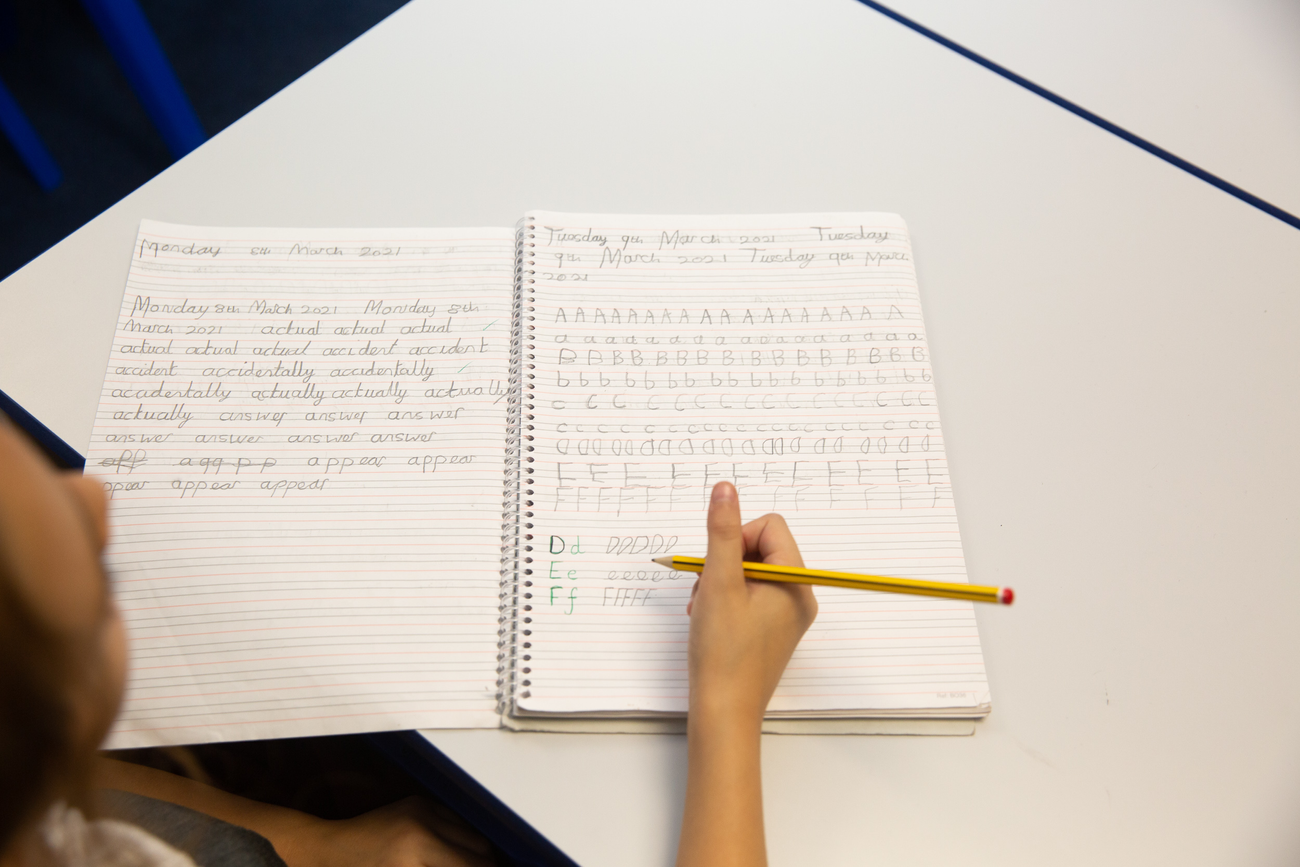 Monday 8th March 2021
Monday 8th March 2021 Monday 8th
March 2021 actual actual actual
actual actual actual accident accident
accident accidentally accidentally
accidentally actually actually actually
actually answer answer answer
answer answer answer answer
app aggpp appear appear
appear appear appear
Tuesday 9th March 2021 Tuesday
9th March 2021 Tuesday 9th March
2021
A A A A A A A A A A A A A A A A A A
a a a a a a a a a a a a a a a a a
B B B B B B B B B B B B B B B B B
b b b b b b b b b b b b b b b b b
C C C C C C C C C C C C C C C
c c c c c c c c c c c c c c c c c
D D D D D D D D D D D D D D D D D
E E E E E E E E E E E
F F F F F F F F F F F F F
D d D D D D D
E e e e e e e
F f F F F F F